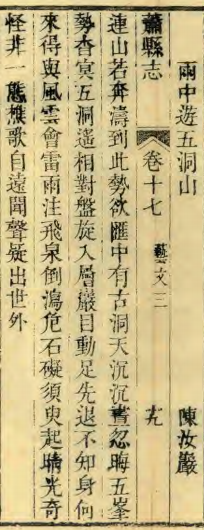 雨中遊五洞山
陳汝巖
蕭縣志
卷十七
藝文三
連山若奔濤到此勢欲匯中有古洞天沉沉晝忽晦五峯
勢杳冥五洞遙相對盤旋入層巖目動足先退不知身何
來得與風雲會雷雨注飛泉倒瀉危石礙須臾起晴光奇
怪井一態樵歌自遠聞聲疑出世外